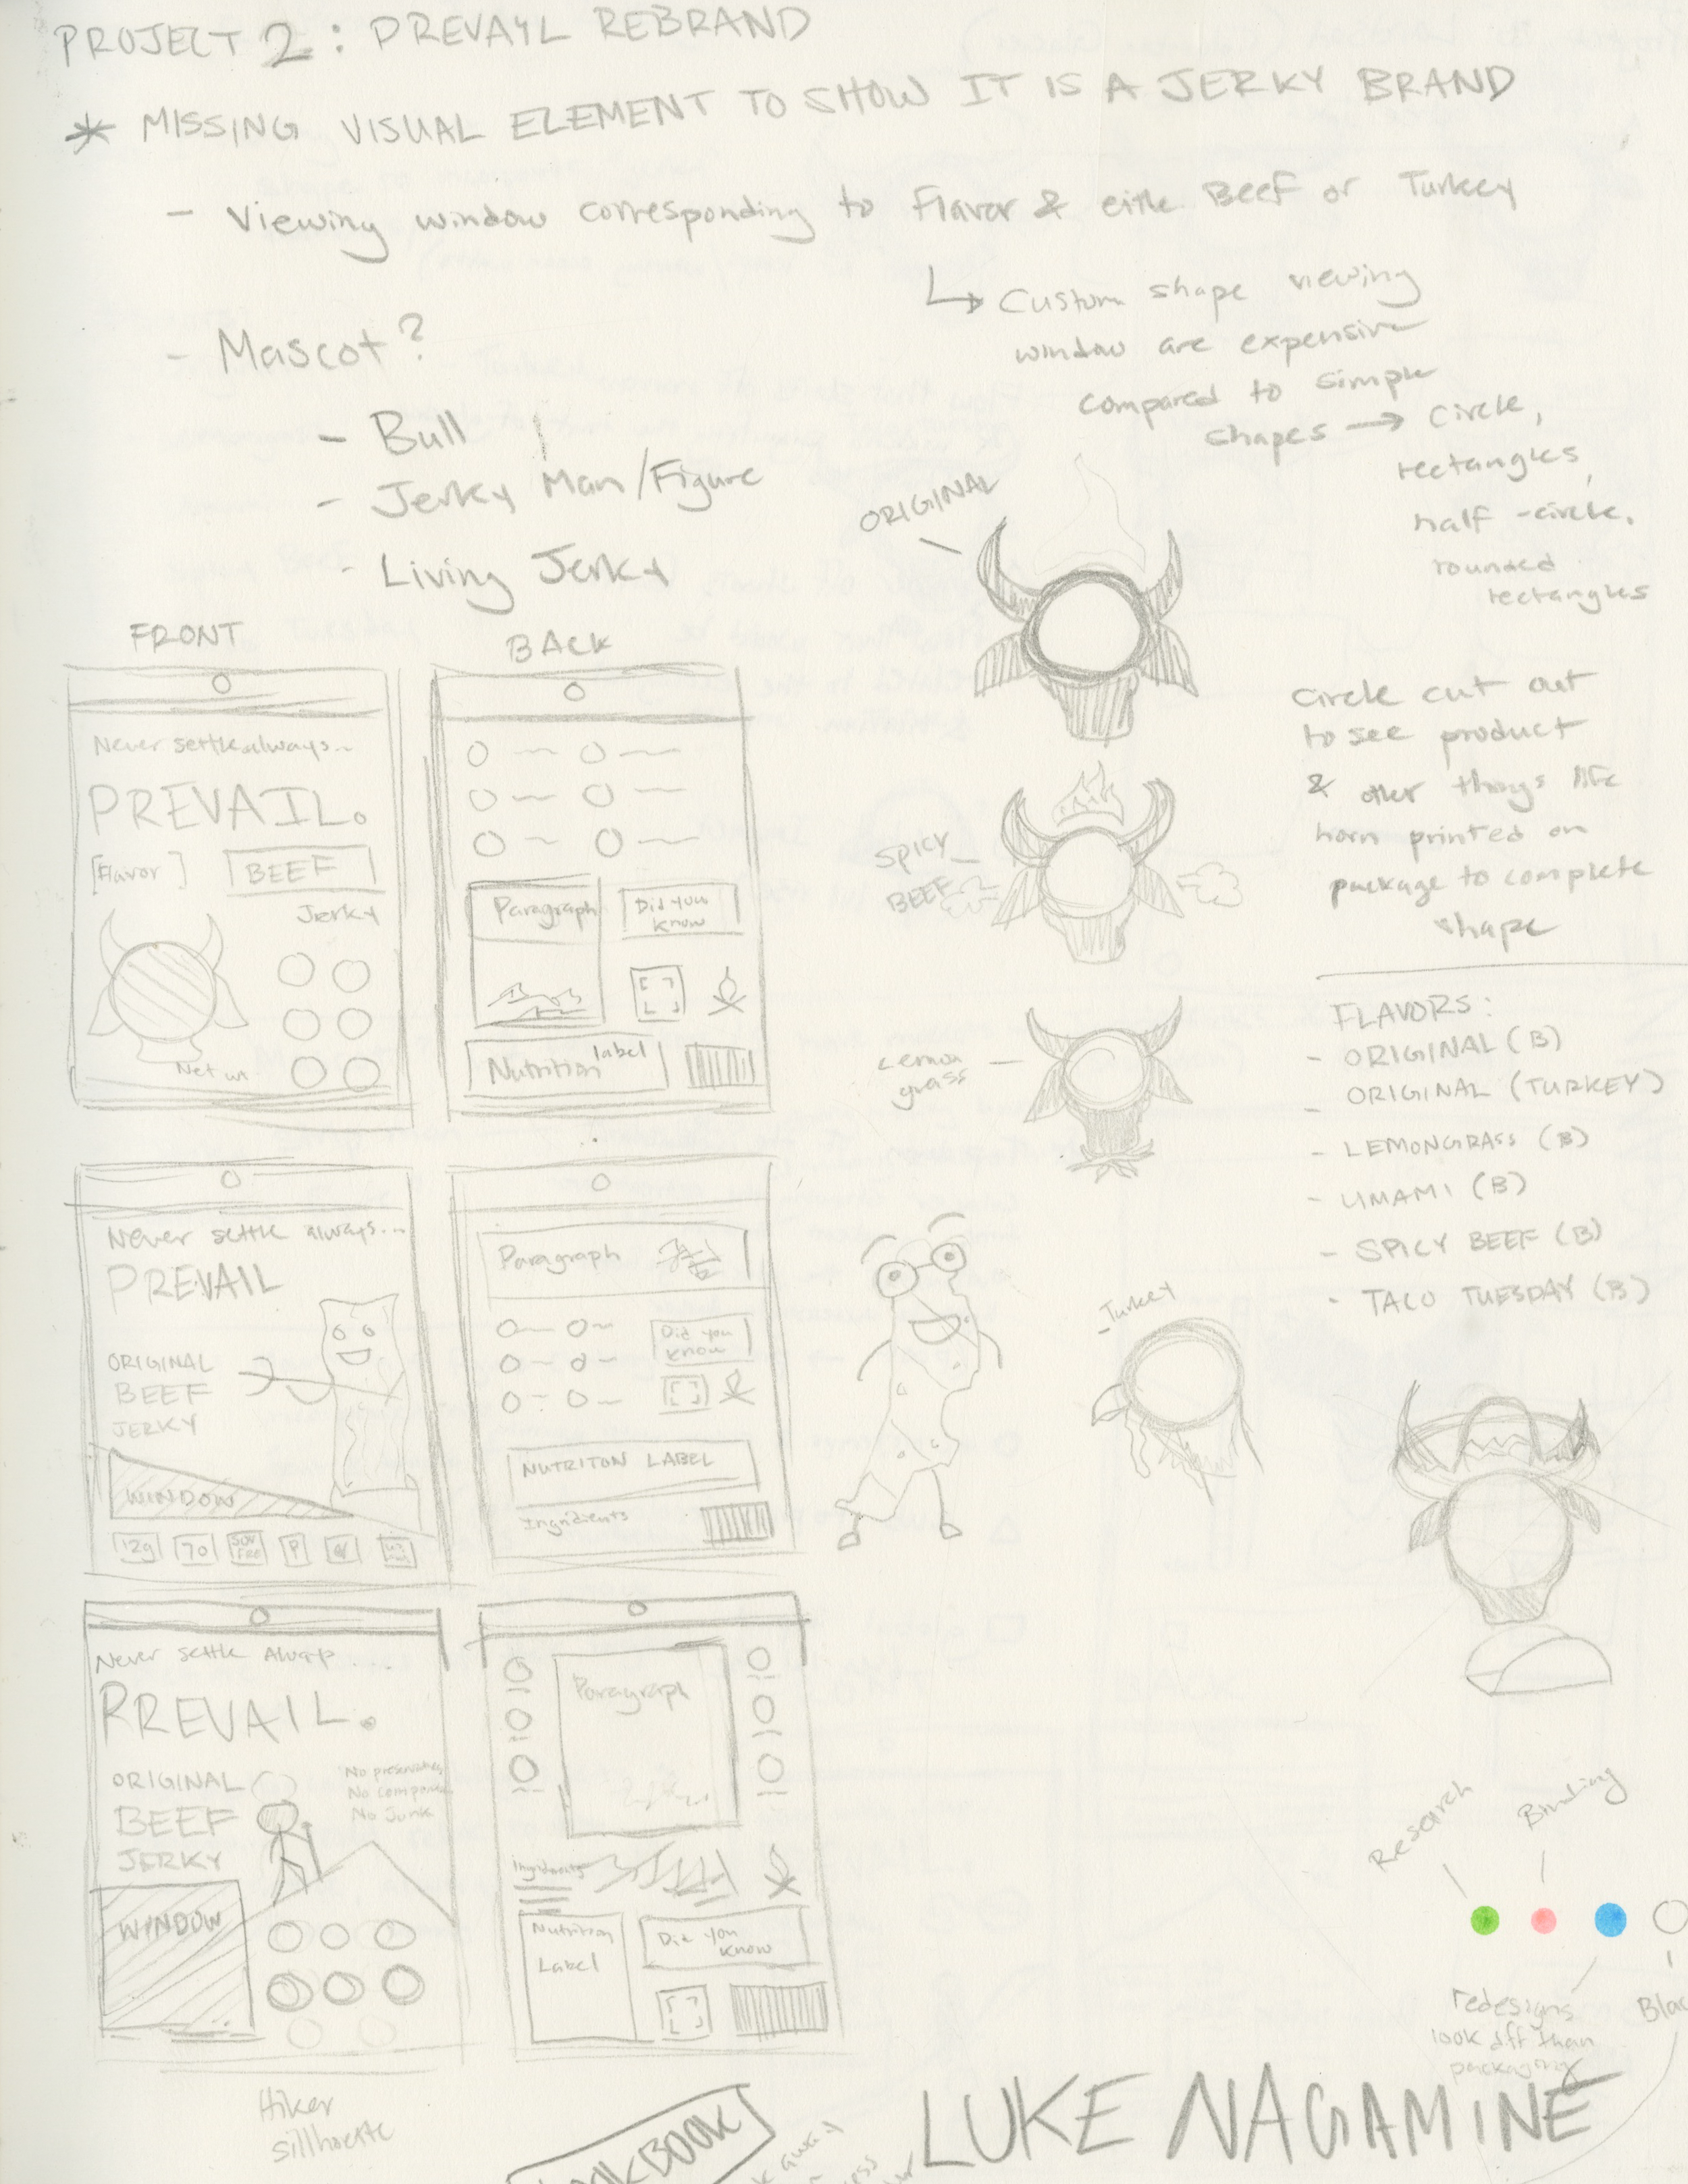 PROJECT 2: PREVAYL REBRAND
* MISSING VISUAL ELEMENT TO SHOW IT IS A JERKY BRAND
- Viewing window corresponding to Flavor & eithe Beef or Turkey
↳ Custom shape viewing
window are expensive
compared to simple
shapes → Circle,
rectangles,
half-circle,
rounded
rectangles
- Mascot?
- Bull
- Jerky Man/Figure
- Living Jerky
FRONT
BACK
Never settle always...
PREVAIL.
[Flavor]
BEEF
Jerky
Net wt
Paragraph
Did you
know
Nutrition label
ORIGINAL
SPICY
BEEF
Lemon
grass
Circle cut out
to see product
& other things like
horn printed on
package to complete
shape
FLAVORS:
- ORIGINAL (B)
- ORIGINAL (TURKEY)
- LEMONGRASS (B)
- UMAMI (B)
- SPICY BEEF (B)
- TACO TUESDAY (B)
Never settle always...
PREVAIL
ORIGINAL
BEEF
JERKY
WINDOW
12g
70
SOY
FREE
P
Paragraph
Did you
know
NUTRITON LABEL
Ingridients
- Turkey
Never settle Always...
PREVAIL.
ORIGINAL
BEEF
JERKY
No preservatives
No
No Junk
WINDOW
Paragraph
Ingridients
Nutrition
Label
Did you
know
Hiker
sillhoette
Research
Binding
redesigns
look diff than
packaging
LUKE NAGAMINE